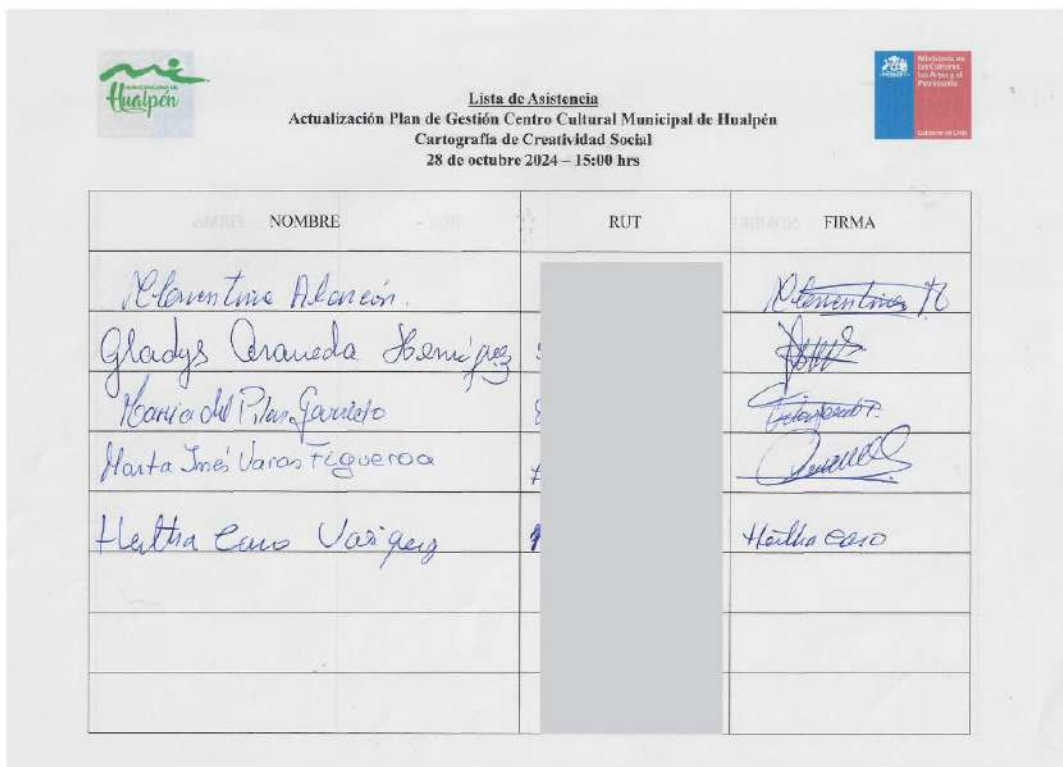 MUNICIPALIDAD DE
Hualpén
Ministerio de
las Culturas,
las Artes y el
Patrimonio
Gobierno de Chile
Lista de Asistencia
Actualización Plan de Gestión Centro Cultural Municipal de Hualpén
Cartografía de Creatividad Social
28 de octubre 2024 – 15:00 hrs
NOMBRE RUT FIRMA
Alarcón.
Gladys Araneda
Maria del Pilar Garreto
Marta Inés Varas Figueroa
Hertha Caro Vasquez Hertha Caro